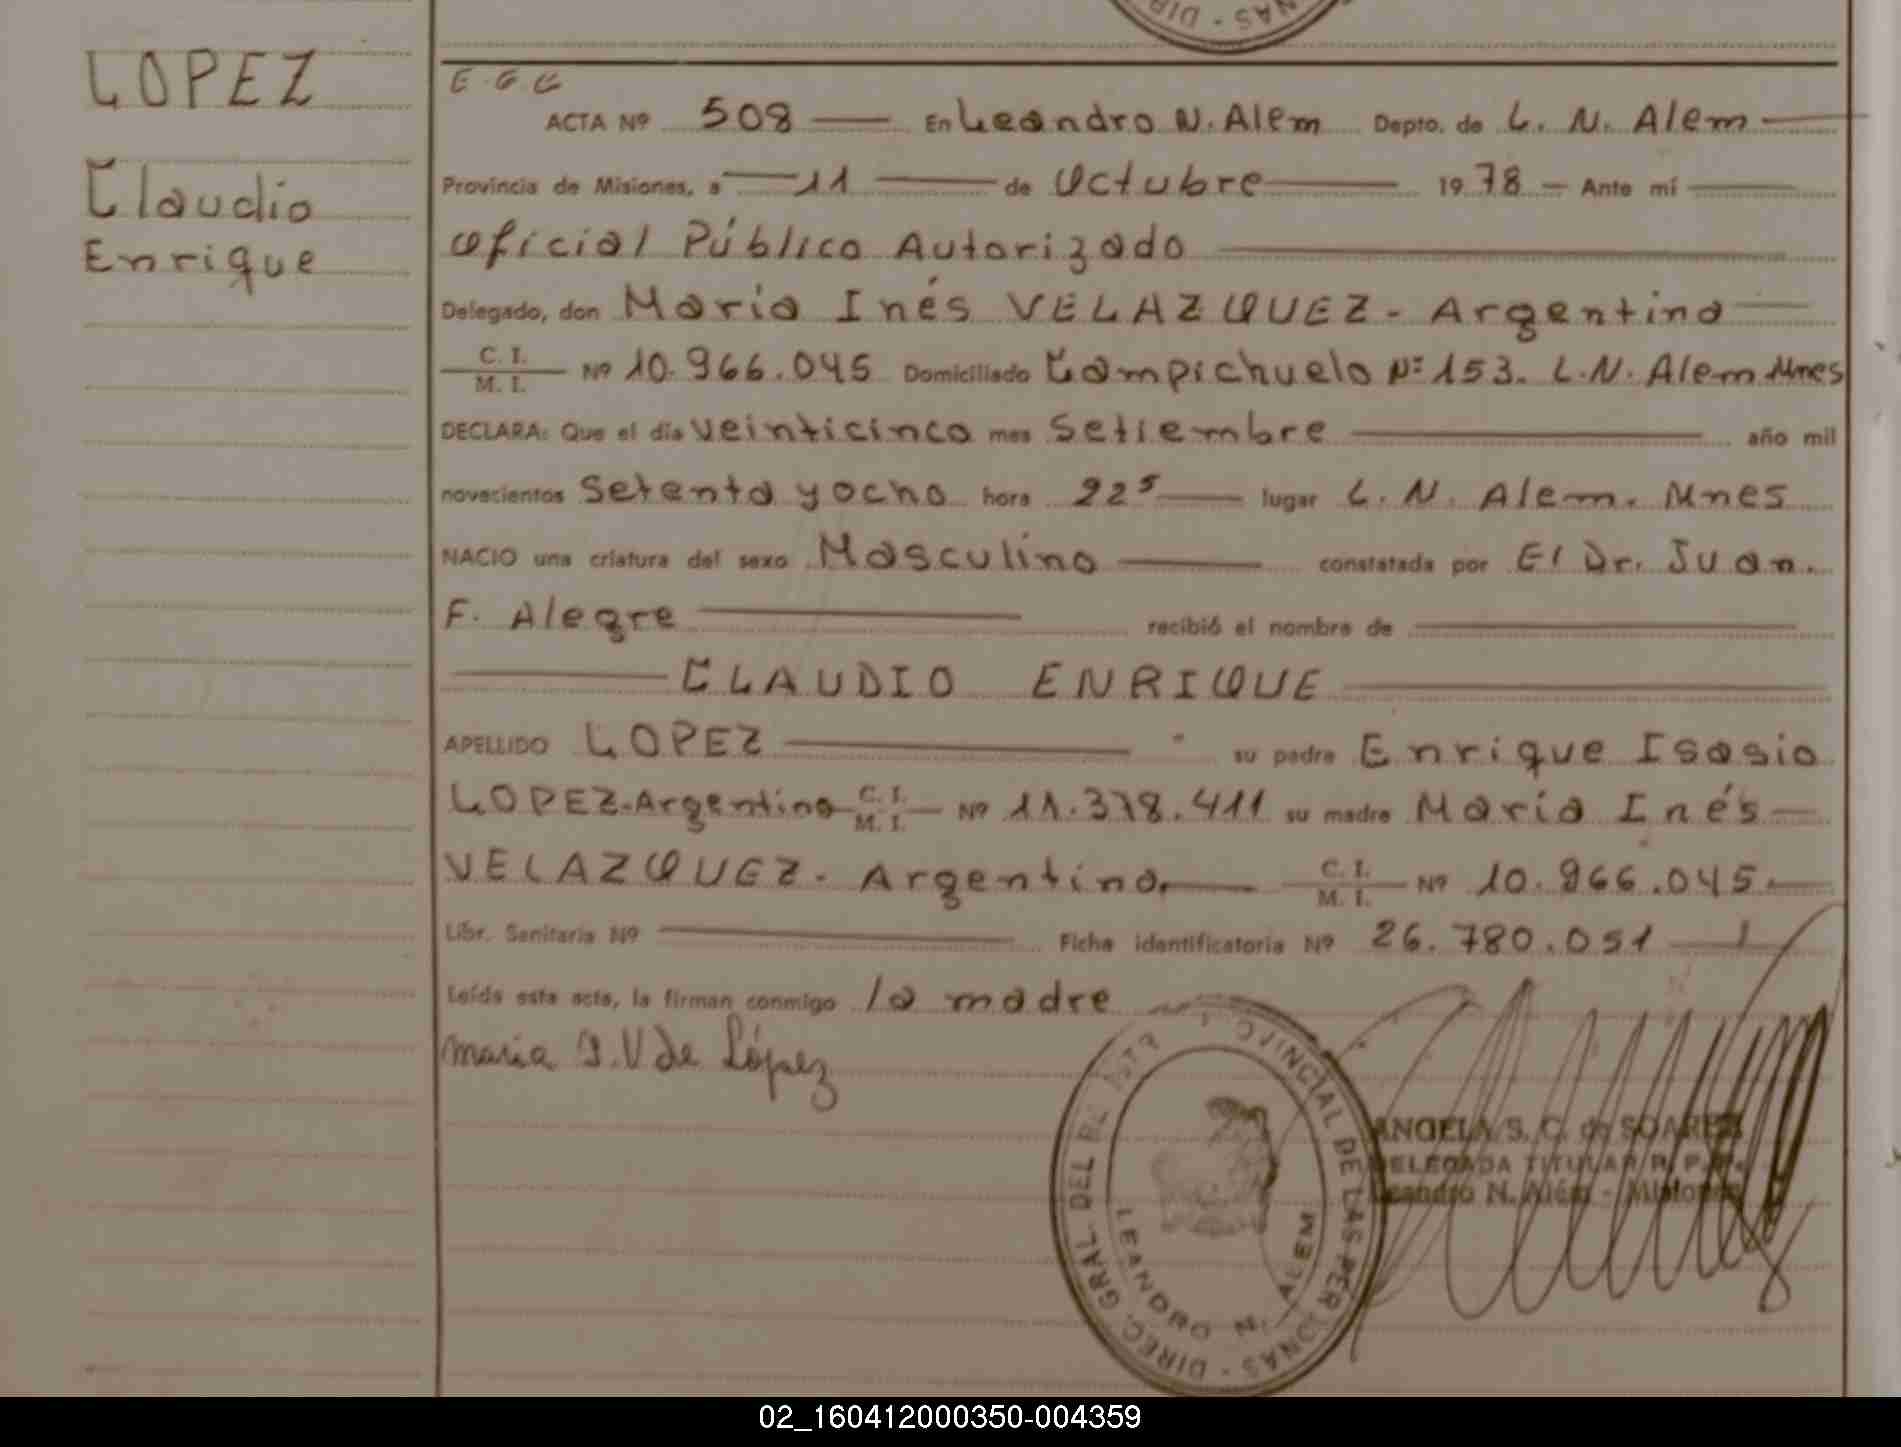 NAS - DIR
LOPEZ
Claudio
Enrique
E. G. C
ACTA Nº 508 — En Leandro N. Alem Depto. de L. N. Alem —
Provincia de Misiones, a — 11 — de Octubre — 19 78 — Ante mí —
Oficial Público Autorizado —
Delegado, don María Inés VELAZQUEZ - Argentina —
C. I.
M. I. Nº 10.966.045 Domiciliado Campichuelo Nº 153. L.N. Alem Mnes
DECLARA: Que el día veinticinco mes Setiembre — año mil
novecientos Setenta y ocho hora 22 5 — lugar L. N. Alem. Mnes
NACIO una criatura del sexo Masculino — constatada por El Dr. Juan.
F. Alegre — recibió el nombre de —
— CLAUDIO ENRIQUE —
APELLIDO LOPEZ — su padre Enrique Isasio
LOPEZ-Argentino C. I. M. I. — Nº 11.378.411 su madre María Inés —
VELAZQUEZ - Argentina, — C. I. M. I. — Nº 10.966.045. —
Libr. Sanitaria Nº — Ficha identificatoria Nº 26.780.051 —
Leída esta acta, la firman conmigo la madre
maria I. V de López
DIREC. GRAL DEL PROVINCIAL DE LAS PERSONAS
LEANDRO N. ALEM
ANGELA S. C. de SOAREZ
DELEGADA TITULAR R. P. P.
Leandro N. Além - Misiones
02_160412000350-004359